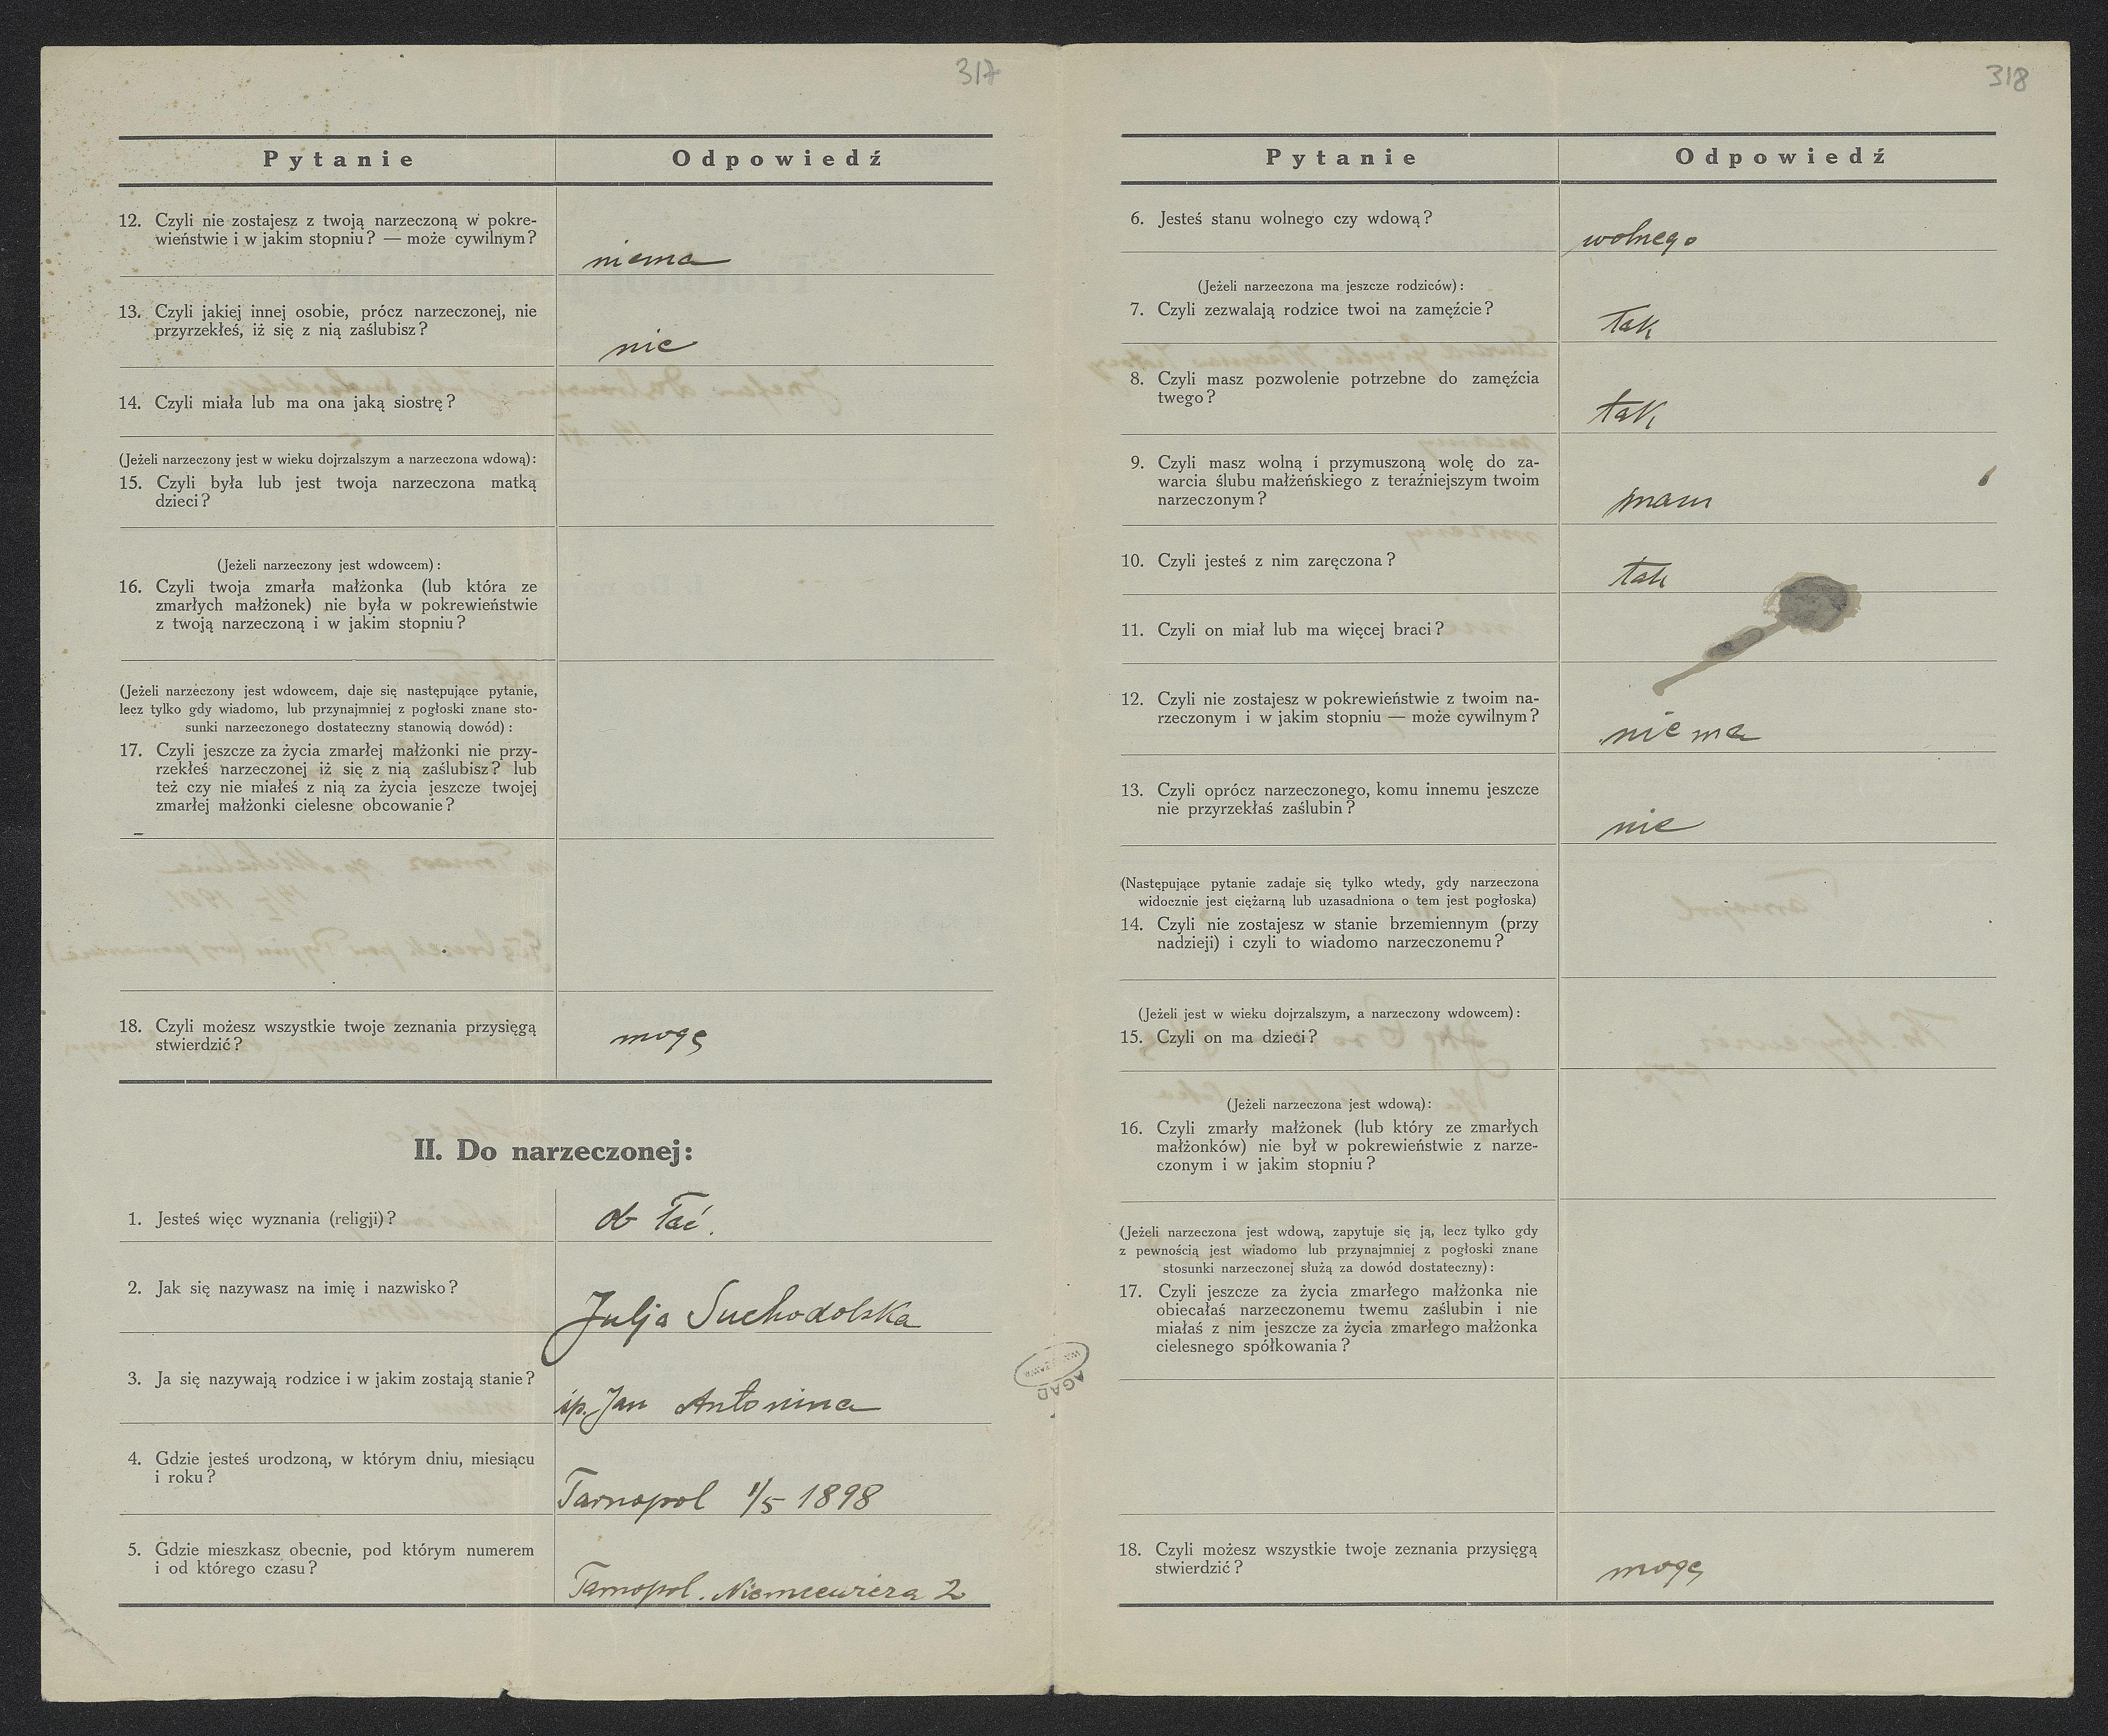 317
Pytanie
Odpowiedź
12. Czyli nie zostajesz z twoją narzeczoną w pokre-
wieństwie i w jakim stopniu? — może cywilnym?
niema
13. Czyli jakiej innej osobie, prócz narzeczonej, nie
przyrzekłeś, iż się z nią zaślubisz?
nie
14. Czyli miała lub ma ona jaką siostrę?
(Jeżeli narzeczony jest w wieku dojrzalszym a narzeczona wdową):
15. Czyli była lub jest twoja narzeczona matką
dzieci?
(Jeżeli narzeczony jest wdowcem):
16. Czyli twoja zmarła małżonka (lub która ze
zmarłych małżonek) nie była w pokrewieństwie
z twoją narzeczoną i w jakim stopniu?
(Jeżeli narzeczony jest wdowcem, daje się następujące pytanie,
lecz tylko gdy wiadomo, lub przynajmniej z pogłoski znane sto-
sunki narzeczonego dostateczny stanowią dowód):
17. Czyli jeszcze za życia zmarłej małżonki nie przy-
rzekłeś narzeczonej iż się z nią zaślubisz? lub
też czy nie miałeś z nią za życia jeszcze twojej
zmarłej małżonki cielesne obcowanie?
18. Czyli możesz wszystkie twoje zeznania przysięgą
stwierdzić?
mogę
II. Do narzeczonej:
1. Jesteś więc wyznania (religji)?
ob łać.
2. Jak się nazywasz na imię i nazwisko?
Julja Suchodolska
3. Ja się nazywają rodzice i w jakim zostają stanie?
śp. Jan Antonina
4. Gdzie jesteś urodzoną, w którym dniu, miesiącu
i roku?
Tarnopol 1/5 1898
5. Gdzie mieszkasz obecnie, pod którym numerem
i od którego czasu?
Tarnopol. Niemcewicza 2
AGAD
WARSZAWA
318
Pytanie
Odpowiedź
6. Jesteś stanu wolnego czy wdową?
wolnego
(Jeżeli narzeczona ma jeszcze rodziców):
7. Czyli zezwalają rodzice twoi na zamęźcie?
tak
8. Czyli masz pozwolenie potrzebne do zamęźcia
twego?
tak
9. Czyli masz wolną i przymuszoną wolę do za-
warcia ślubu małżeńskiego z teraźniejszym twoim
narzeczonym?
mam
10. Czyli jesteś z nim zaręczona?
tak
11. Czyli on miał lub ma więcej braci?
12. Czyli nie zostajesz w pokrewieństwie z twoim na-
rzeczonym i w jakim stopniu — może cywilnym?
niema
13. Czyli oprócz narzeczonego, komu innemu jeszcze
nie przyrzekłaś zaślubin?
nie
(Następujące pytanie zadaje się tylko wtedy, gdy narzeczona
widocznie jest ciężarną lub uzasadniona o tem jest pogłoska)
14. Czyli nie zostajesz w stanie brzemiennym (przy
nadzieji) i czyli to wiadomo narzeczonemu?
(Jeżeli jest w wieku dojrzalszym, a narzeczony wdowcem):
15. Czyli on ma dzieci?
(Jeżeli narzeczona jest wdową):
16. Czyli zmarły małżonek (lub który ze zmarłych
małżonków) nie był w pokrewieństwie z narze-
czonym i w jakim stopniu?
(Jeżeli narzeczona jest wdową, zapytuje się ją, lecz tylko gdy
z pewnością jest wiadomo lub przynajmniej z pogłoski znane
stosunki narzeczonej służą za dowód dostateczny):
17. Czyli jeszcze za życia zmarłego małżonka nie
obiecałaś narzeczonemu twemu zaślubin i nie
miałaś z nim jeszcze za życia zmarłego małżonka
cielesnego spółkowania?
18. Czyli możesz wszystkie twoje zeznania przysięgą
stwierdzić?
mogę